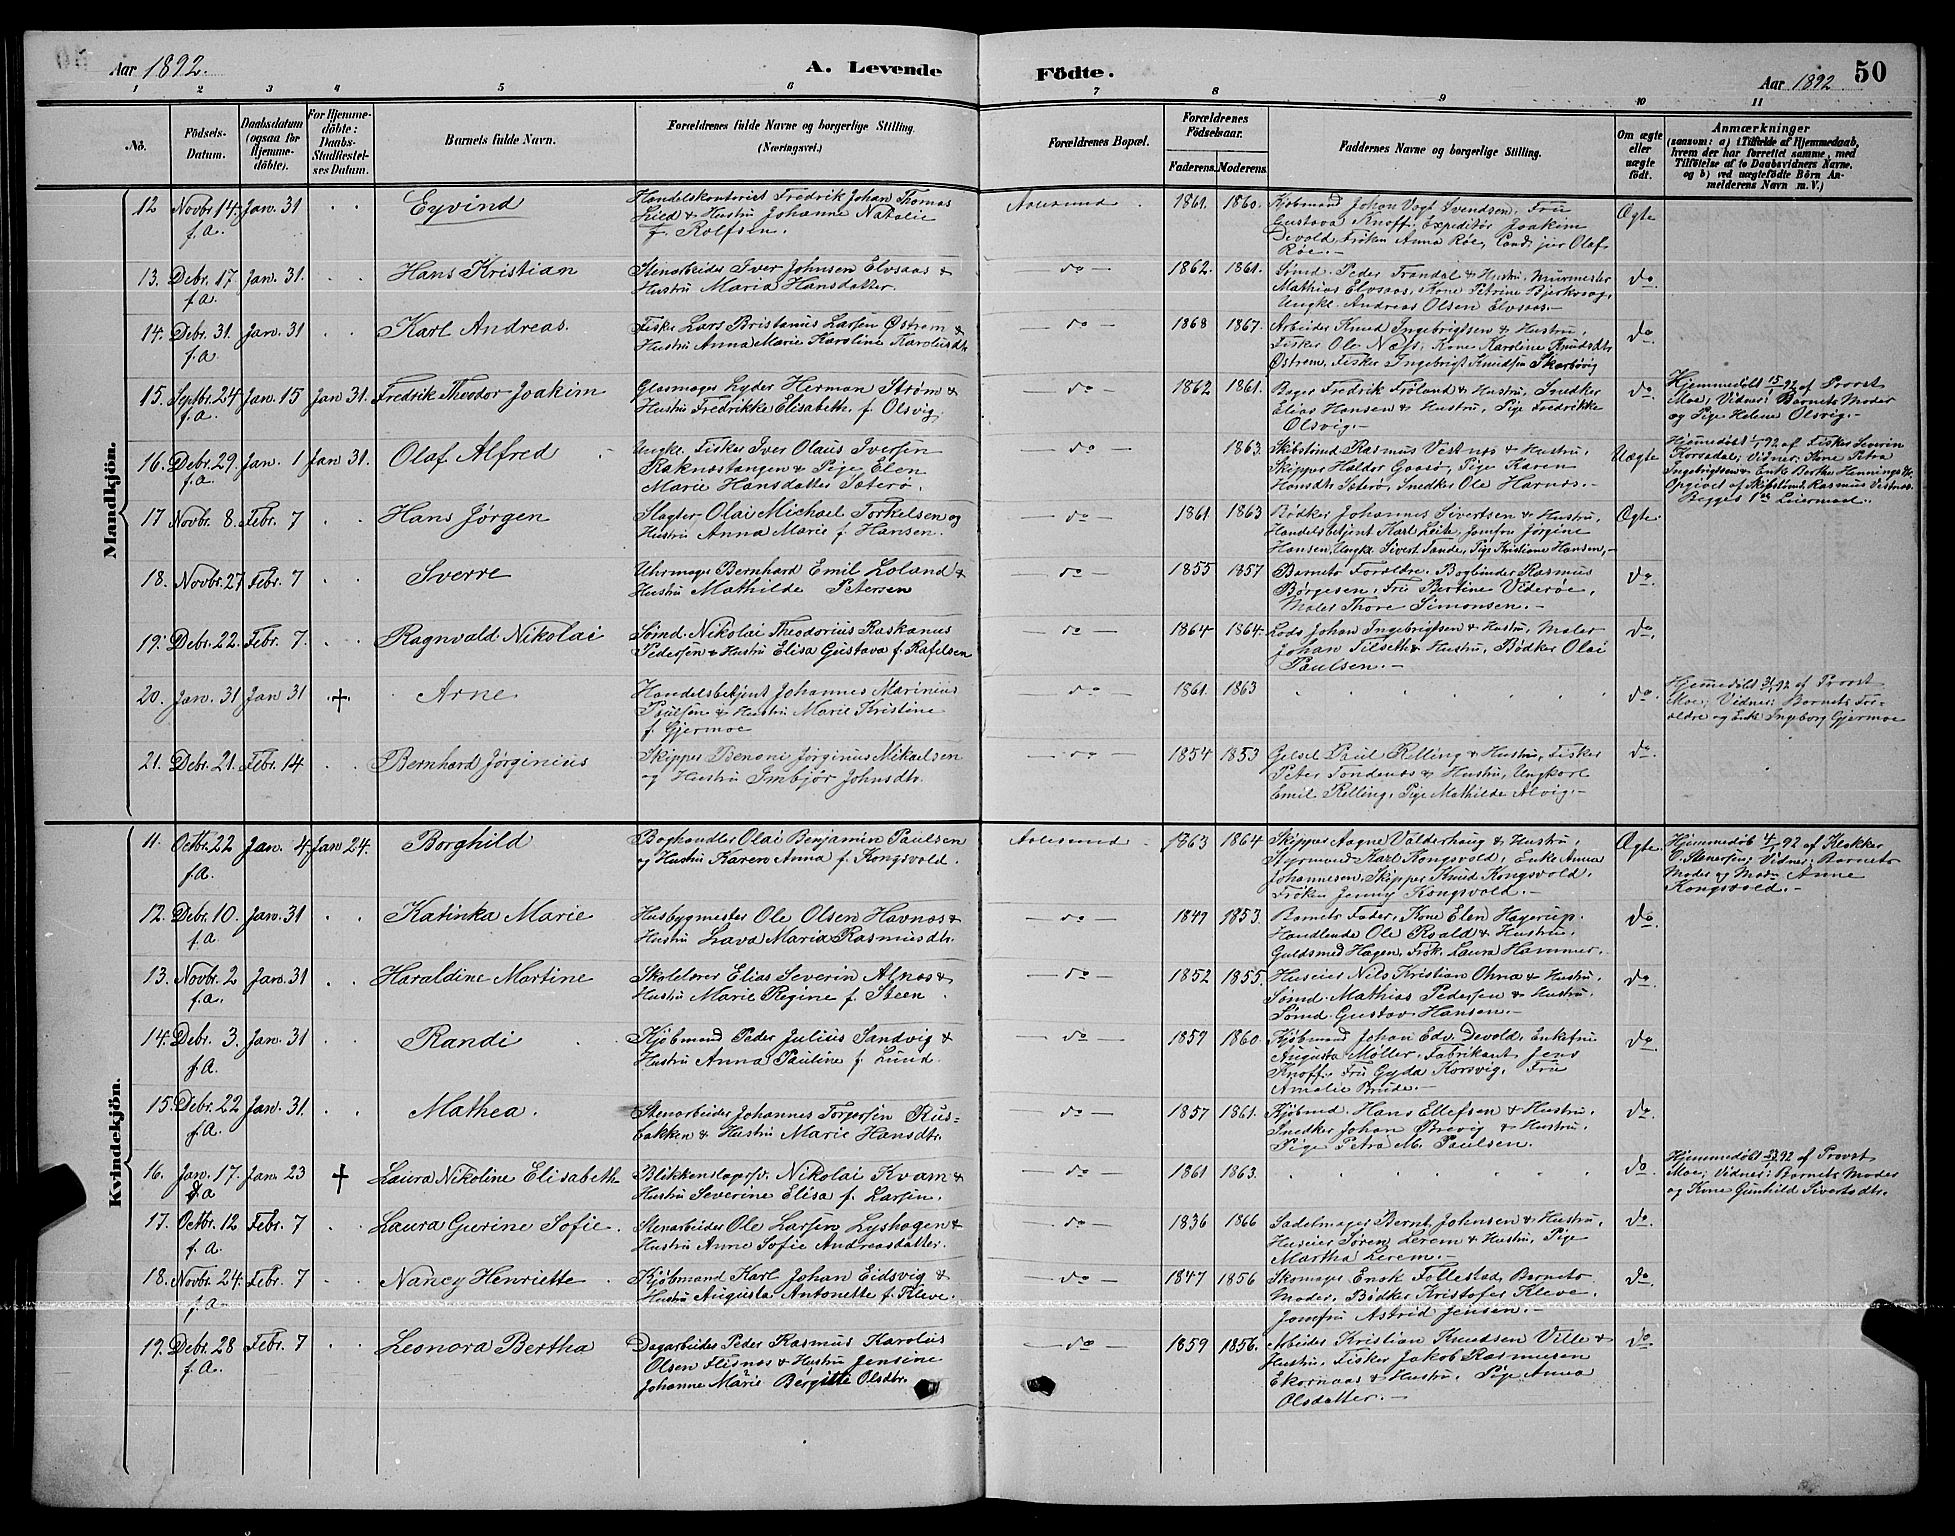 Aar 1892. A. Levende Födte. Aar 1892 50
1 2 3 4 5 6 7 8 9 10 11
No.
Födsels-Datum.
Daabsdatum (ogsaa for Hjemme-döbte).
For Hjemme-döbte: Daabs-Stadfæstel-ses Datum.
Barnets fulde Navn.
Forældrenes fulde Navne og borgerlige Stilling. (Næringsvei.)
Forældrenes Bopæl.
Forældrenes Födselsaar.
Faderens. Moderens.
Faddernes Navne og borgerlige Stilling.
Om ægte eller uægte födt.
Anmærkninger
(saasom: a) i Tilfælde af Hjemmedaab,
hvem der har forrettet samme, med
Tilföielse af to Daabsvidners Navne.
og b) ved uægtefödte Börn An-
melderens Navn m. V.)
Mandkjön.
12 Novbr. 14. f.a. Jan. 31 Eyvind
Handelskontorist Fredrik Johan Thomas
Lild & Hustru Johanne Natalie
f. Rolfsen.
Aalesund. 1861. 1860.
Kjøbmand Johan Vogt Svendsen, Fru
Gustava Knoff, Expeditør Joakim
Devold, Frøken Anna Røe, Cand. jur Olaf
Røe.—
Ægte
13. Debr. 17 f.a. Jan. 31. Hans Kristian
Stenarbeider Iver Johnsen Elvsaas &
Hustru Maria Hansdatter.
do 1862. 1861.
Sømd. Peder Frandal & Hustru, Murmester
Mathias Elvsaas, Kone Petrine Bjerkevag,
Ungk. Andreas Olsen Elvsaas.—
do
14. Debr. 31. f.a. Jan. 31 Karl Andreas.
Fisker Lars Bristanus Larsen Østrem &
Hustru Anna Marie Karoline Karolusdtr.
do 1868 1867.
Arbeider Knud Ingebrigtsen & Hustru,
Fisker Ole Næss, Kone Karoline Knudsdtr
Østrem, Fisker Ingebrigt Knudsen Skarbøvig
do
15. Septbr. 24 f.a. Jan. 15 Jan 31. Fredrik Theodor Joakim
Glasmager Lyder Herman Strøm &
Hustru Fredrikke Elisabeth f. Olsvig.
do 1862 1861.
Bager Fredrik Frøland & Hustru, Snedker
Elias Hansen & Hustru, Pige Fredrikke
Olsvig.—
do
Hjemmedøbt 15/1 92 af Provst
Moe; Vidner: Barnets Moder
og Pige Helene Olsvig.—
16. Debr. 29. f.a. Jan. 1 Jan 31. Olaf Alfred
Ungk. Fisker Iver Olaus Iversen
Raknestangen & Pige Elen
Marie Hansdatter Sæterø.
do 1863.
Skibstømd Rasmus Vestnes & Hustru,
Skipper Haldor Gaasø, Pige Karen
Hansdtr Sæterø, Snedker Ole Harnes.—
Uægte
Hjemmedøbt 1/1 92 af Fisker Severin
Korsadal; Vidner: Kone Petra
Ingebrigtsen & Enke Berthe Hennings
Opgivet af Skibstømd. Rasmus Vestnes.
Begges 1ste Leiermaal.
17 Novbr. 8. Febr. 7 Hans Jørgen
Slagter Olai Michael Torkelsen og
Hustru Anna Marie f. Hansen.
do 1861 1863
Bødker Johannes Sivertsen & Hustru,
Handelsbetjent Karl Leite, Jomfru Jørgine
Hansen, Ungk. Sivert Tande, Pige Kristiane Hansen.—
Ægte.
18. Novbr. 27 Febr. 7 Sverre
Uhrmager Bernhard Emil Loland &
Hustru Mathilde Petersen
do 1855 1857
Barnets Forældre, Bogbinder Rasmus
Børgesen, Fru Bertine Viderøe,
Maler Thore Simonsen.—
do
19. Debr. 22. Febr. 7. Ragnvald Nikolai
Sømd. Nikolai Theodorius Raskanus
Pedersen & Hustru Elisa Gustava f. Rafelsen
do 1864 1864.
Lods Johan Ingebrigtsen & Hustru, Maler
Johan Tilseth & Hustru, Bødker Olai
Paulsen.—
do.
20. Jan. 31 Jan 31 + Arne
Handelsbetjent Johannes Marinius
Paulsen & Hustru Marie Kristine
f. Gjermoe
do 1861. 1863
do.
Hjemmedøbt 31/1 92 af Provst
Moe; Vidner: Barnets For-
ældre og Enke Ingeborg Gjermoe
21. Debr. 21. Febr. 14 Bernhard Jørginius
Skipper Benoni Jørginus Mikaelsen
og Hustru Imbjør Johnsdtr.
do 1854 1853
Gelsel Paul Relling & Hustru, Fisker
Peter Tondenes & Hustru, Ungkarl
Emil Relling, Pige Mathilde Alvig.—
do.
Kvindekjön.
11. Octbr. 22 f.a. Jan. 4. Jan 24. Borghild
Boghandler Olai Benjamin Paulsen
og Hustru Karen Anna f. Kongsvold.
Aalesund. 1863 1864
Skipper Aagne Valderhaug & Hustru,
Styrmand Karl Kongsvold, Enke Anna
Johannesen, Skipper Knud Kongsvold,
Frøken Jenny Kongsvold.—
Ægte.
Hjemmedøb. 4/1 92 af Klokker
O. Stenersen; Vidner: Barnets
Moder og Madm Anne
Kongsvold.—
12. Debr. 10. f.a. Jan. 31 Katinka Marie
Husbygmester Ole Olsen Havnes &
Hustru Lava Maria Rasmusdtr.
do 1849 1853.
Barnets Fader, Kone Elen Hagerup,
Handlende Ole Roald & Hustru,
Guldsmed Hagen, Frøk. Laura Hammer.
do.
13. Novbr. 2 f.a. Jan. 31 Haraldine Martine
Skolelærer Elias Severin Alnæs &
Hustru Marie Regine f. Steen.
do 1852 1855.
Huseier Nils Kristian Ohna & Hustru,
Sømd. Mathias Pedersen & Hustru,
Sømd. Gustav Hansen.—
do.
14. Debr. 3. f.a. Jan. 31 Randi
Kjøbmand Peder Julius Sandvig &
Hustru Anna Pauline f. Lund.
do 1859 1860.
Kjøbmand Johan Edv. Devold, Enkefru
Augusta Møller, Fabrikant Jens
Knoff, Fru Gyda Korsvig, Fru
Amalie Brude.—
do.
15. Debr. 22 f.a. Jan. 31. Mathea.
Stenarbeider Johannes Torgersen Rus-
bakken & Hustru Marie Hansdtr.
do 1857 1861.
Kjøbmd. Hans Ellefsen & Hustru,
Snedker Johan Brevig & Hustru,
Pige Petra M. Paulsen.
do.
16. Jan. 17. Jan. 23 + Laura Nikoline Elisabeth
Blikkenslagersv. Nikolai Kvam &
Hustru Severine Elisa f. Larsen.
do 1861 1863.
do.
Hjemmedøbt 23/1 92 af Provst
Moe; Vidner: Barnets Moder
og Kone Gunhild Sivertsdtr.
17. Octbr. 12 f.a. Febr. 7 Laura Gurine Sofie.
Stenarbeider Ole Larsen Lyshagen &
Hustru Anne Sofie Andreasdatter.
do 1836 1866
Sadelmager Bernt Johnsen & Hustru,
Huseier Søren Lerem & Hustru, Pige
Martha Lerem.—
do.
18. Novbr. 24. f.a. Febr. 7 Nancy Henriette.
Kjøbmand Karl Johan Eidsvig &
Hustru Augusta Antonette f. Kleve.
do 1847 1856
Skomager Enok Follestad, Barnets
Moder, Bødker Kristofer Kleve,
Jomfru Astrid Jensen.—
do.
19. Debr. 28 f.a. Febr. 7 Leonora Bertha
Dagarbeider Peder Rasmus Karolus
Olsen Flisnes & Hustru Jensine
Johanne Marie Bergitte Olsdtr.
do 1859 1856.
Arbeider Kristian Knudsen Ville &
Hustru, Fisker Jakob Rasmusen
Ekornaas & Hustru, Pige Anna
Olsdatter.—
do.